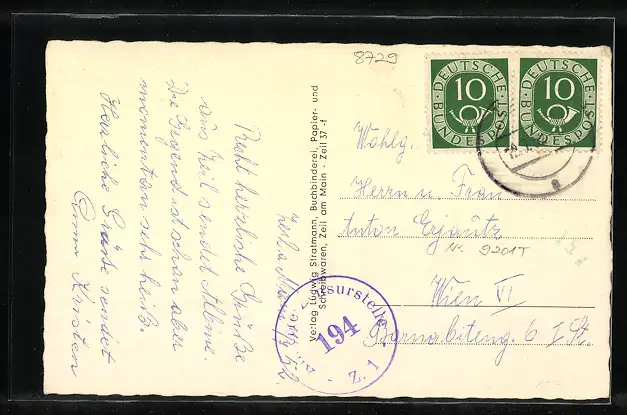 8729
DEUTSCHE BUNDESPOST
10
DEUTSCHE BUNDESPOST
10
Recht herzliche Grüße
aus Zeil sendet
Die Gegend ist schön aber
momentan sehr heiß.
Herzliche Grüße sendet
Verlag Ludwig Stratmann, Buchbinderei, Papier- und
Schreibwaren, Zeil am Main - Zeil 37 -f
Zensurstelle
194
Z. 1
Wohlg.
Herrn u. Frau
Anton
9201T
Wien VI
Barnabiteng. 6 I. St.